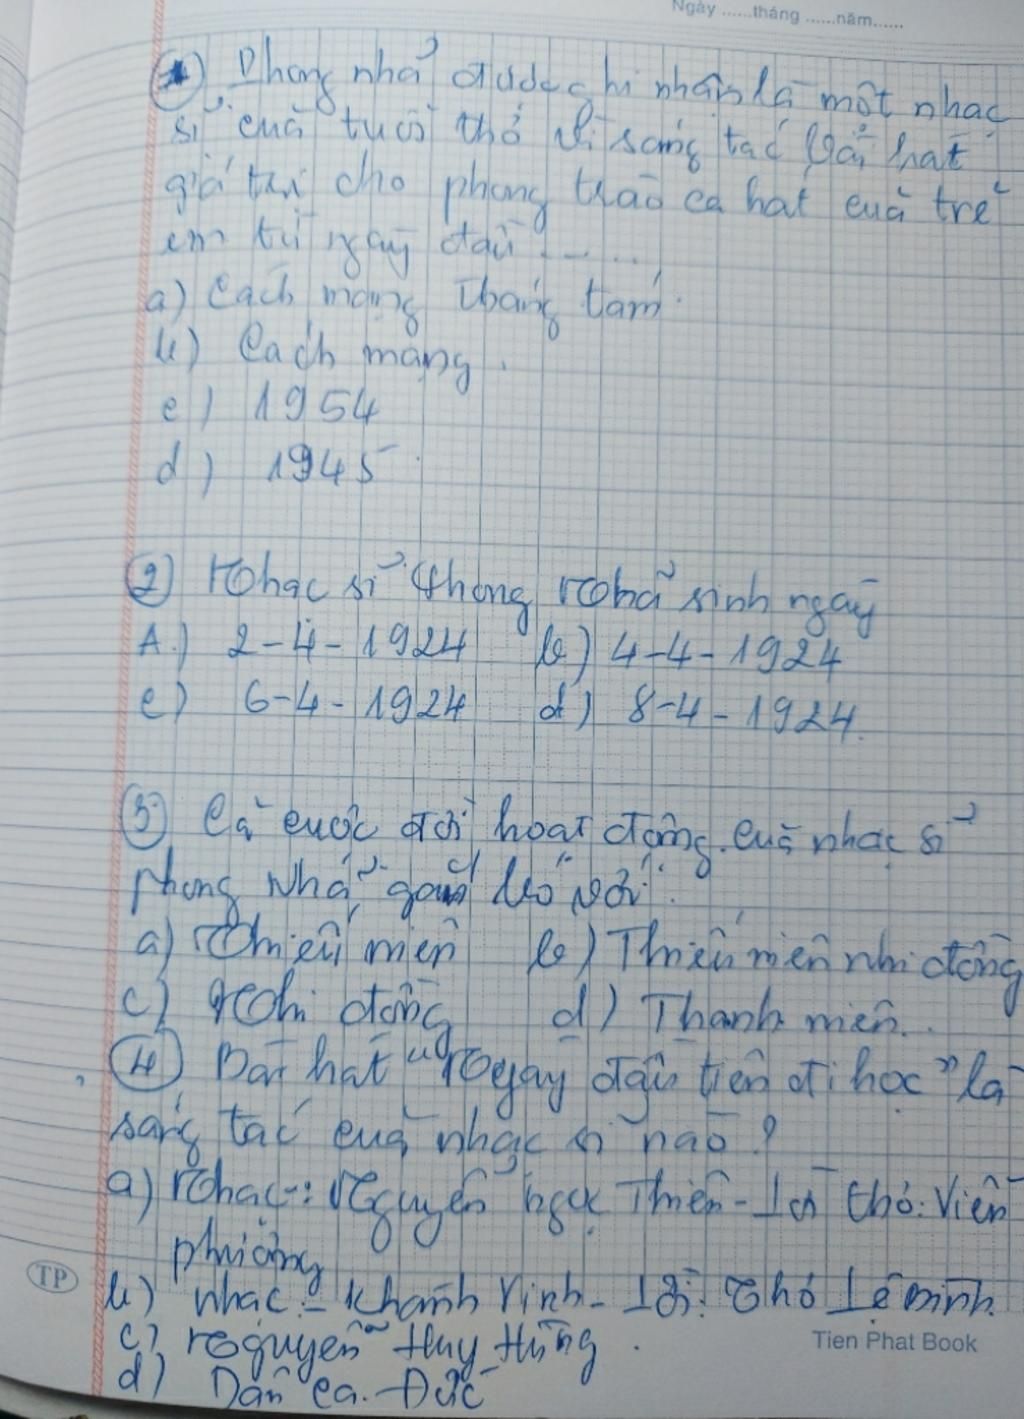 Ngày ......tháng ......năm......
1) Phong nhả được ghi nhận là một nhạc
sĩ của tuổi thơ vì sáng tác bài hát
giá trị cho phong trào ca hát của trẻ
em từ ngày đầu .....
a) Cách mạng Tháng tám.
b) Cách mạng.
c) 1954
d) 1945.
2) Nhạc sĩ Phong Nhã sinh ngày
A.) 2-4-1924 b) 4-4-1924
c) 6-4-1924 d) 8-4-1924.
3) Cả cuộc đời hoạt động của nhạc sĩ
phong Nhã gắn bó với:
a) Thiếu niên b) Thiếu niên nhi đồng
c) Nhi đồng d) Thanh niên..
4) Bài hát "Ngày đầu tiên đi học" là
sáng tác của nhạc sĩ nào?
a) Nhạc: Nguyễn ngọc Thiện - Lời thơ: Viễn
phương
b) nhạc: - Khánh Vinh - Lời: Thơ Lê minh.
c) nguyễn Huy Hùng.
d) Dân ca. Đức
TP
Tien Phat Book